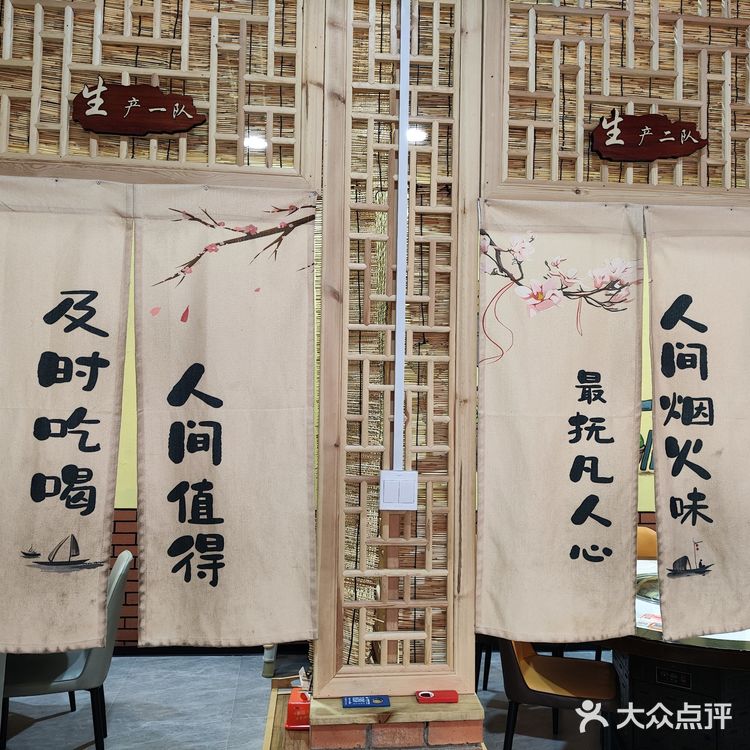 生产一队
生产二队
及时吃喝
人间值得
最抚凡人心
人间烟火味
大众点评